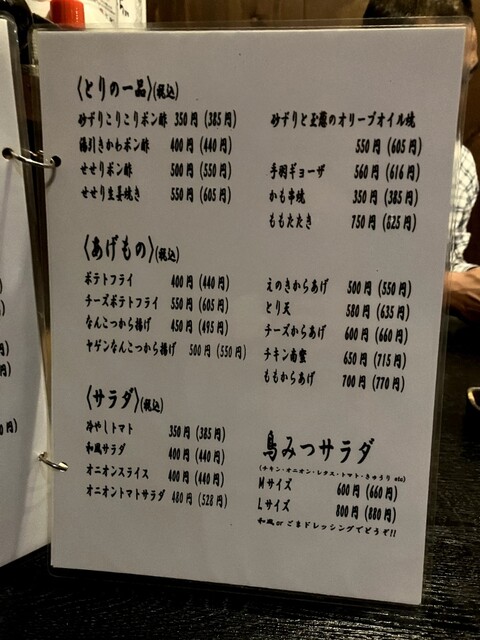 〈とりの一品〉(税込)
砂ずりこりこりポン酢 350円(385円)
湯引きかわポン酢 400円(440円)
せせりポン酢 500円(550円)
せせり生姜焼き 550円(605円)
砂ずりと玉葱のオリーブオイル焼
550円(605円)
手羽ギョーザ 560円(616円)
かも串焼 350円(385円)
ももたたき 750円(825円)
〈あげもの〉(税込)
ポテトフライ 400円(440円)
チーズポテトフライ 550円(605円)
なんこつから揚げ 450円(495円)
ヤゲンなんこつから揚げ 500円(550円)
えのきからあげ 500円(550円)
とり天 580円(635円)
チーズからあげ 600円(660円)
チキン南蛮 650円(715円)
ももからあげ 700円(770円)
〈サラダ〉(税込)
冷やしトマト 350円(385円)
和風サラダ 400円(440円)
オニオンスライス 400円(440円)
オニオントマトサラダ 480円(528円)
鳥みつサラダ
(チキン・オニオン・レタス・トマト・きゅうり etc)
Mサイズ 600円(660円)
Lサイズ 800円(880円)
和風orごまドレッシングでどうぞ!!